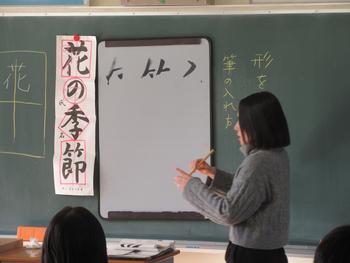 形を
筆の入れ方
花の季節
氏名
花